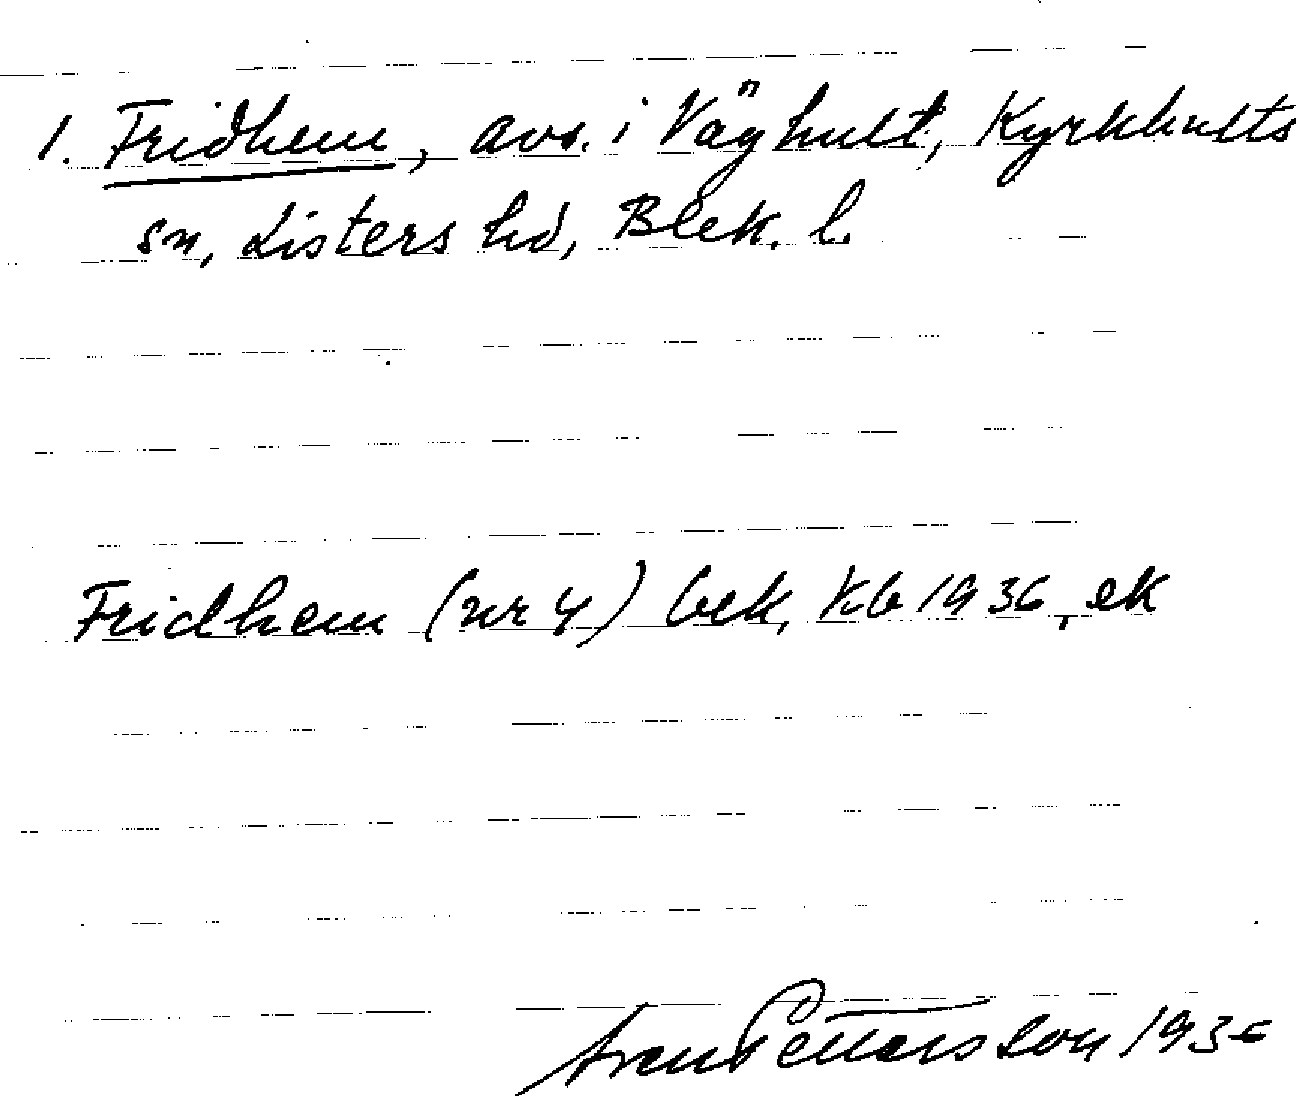 1. Fridhem, avs. i Väghult, Kyrkhults
sn, Listers hd, Blek. l.
Fridhem (nr 4) bek, kb 1936, ek
Pettersson 1936